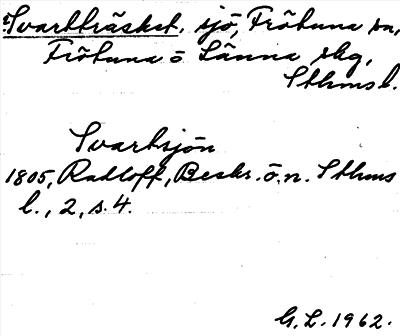 Svartträsket, sjö, Frötuna sn,
Frötuna o Länna skg,
Sthms l.
Svartsjön
1805, Radloff, Beskr. ö. n. Sthms
l., 2, s. 4.
G. L. 1962.